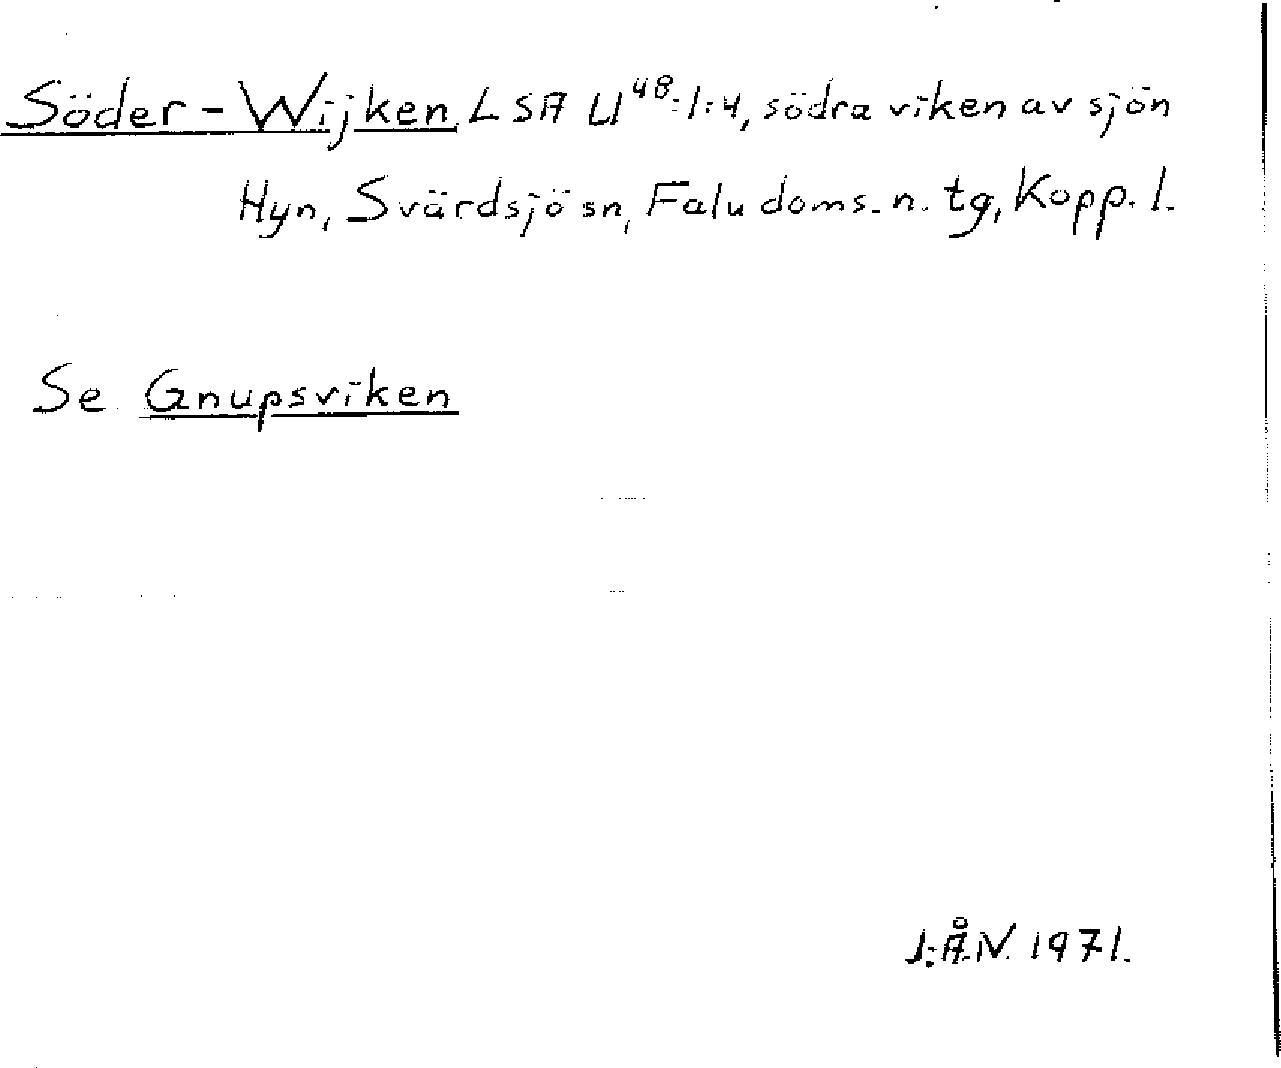 Söder-Wijken, LSA U48:1:4, södra viken av sjön
Hyn, Svärdsjö sn, Falu doms. n. tg, Kopp. l.
Se Gnupsviken
J.Å.N. 1971.